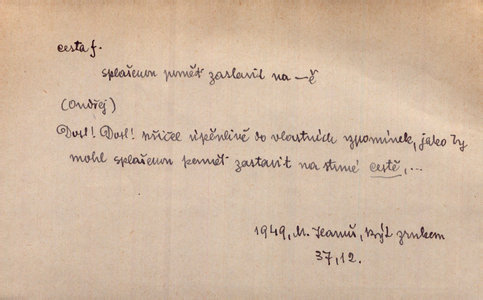 cesta f.
splašenou paměť zastavit na —ě
(Ondřej)
Dost! Dost! křičel úpěnlivě do vlastních vzpomínek, jako by
mohl splašenou paměť zastavit na strmé cestě,...
1949, M. Hanuš, Když
37,12.